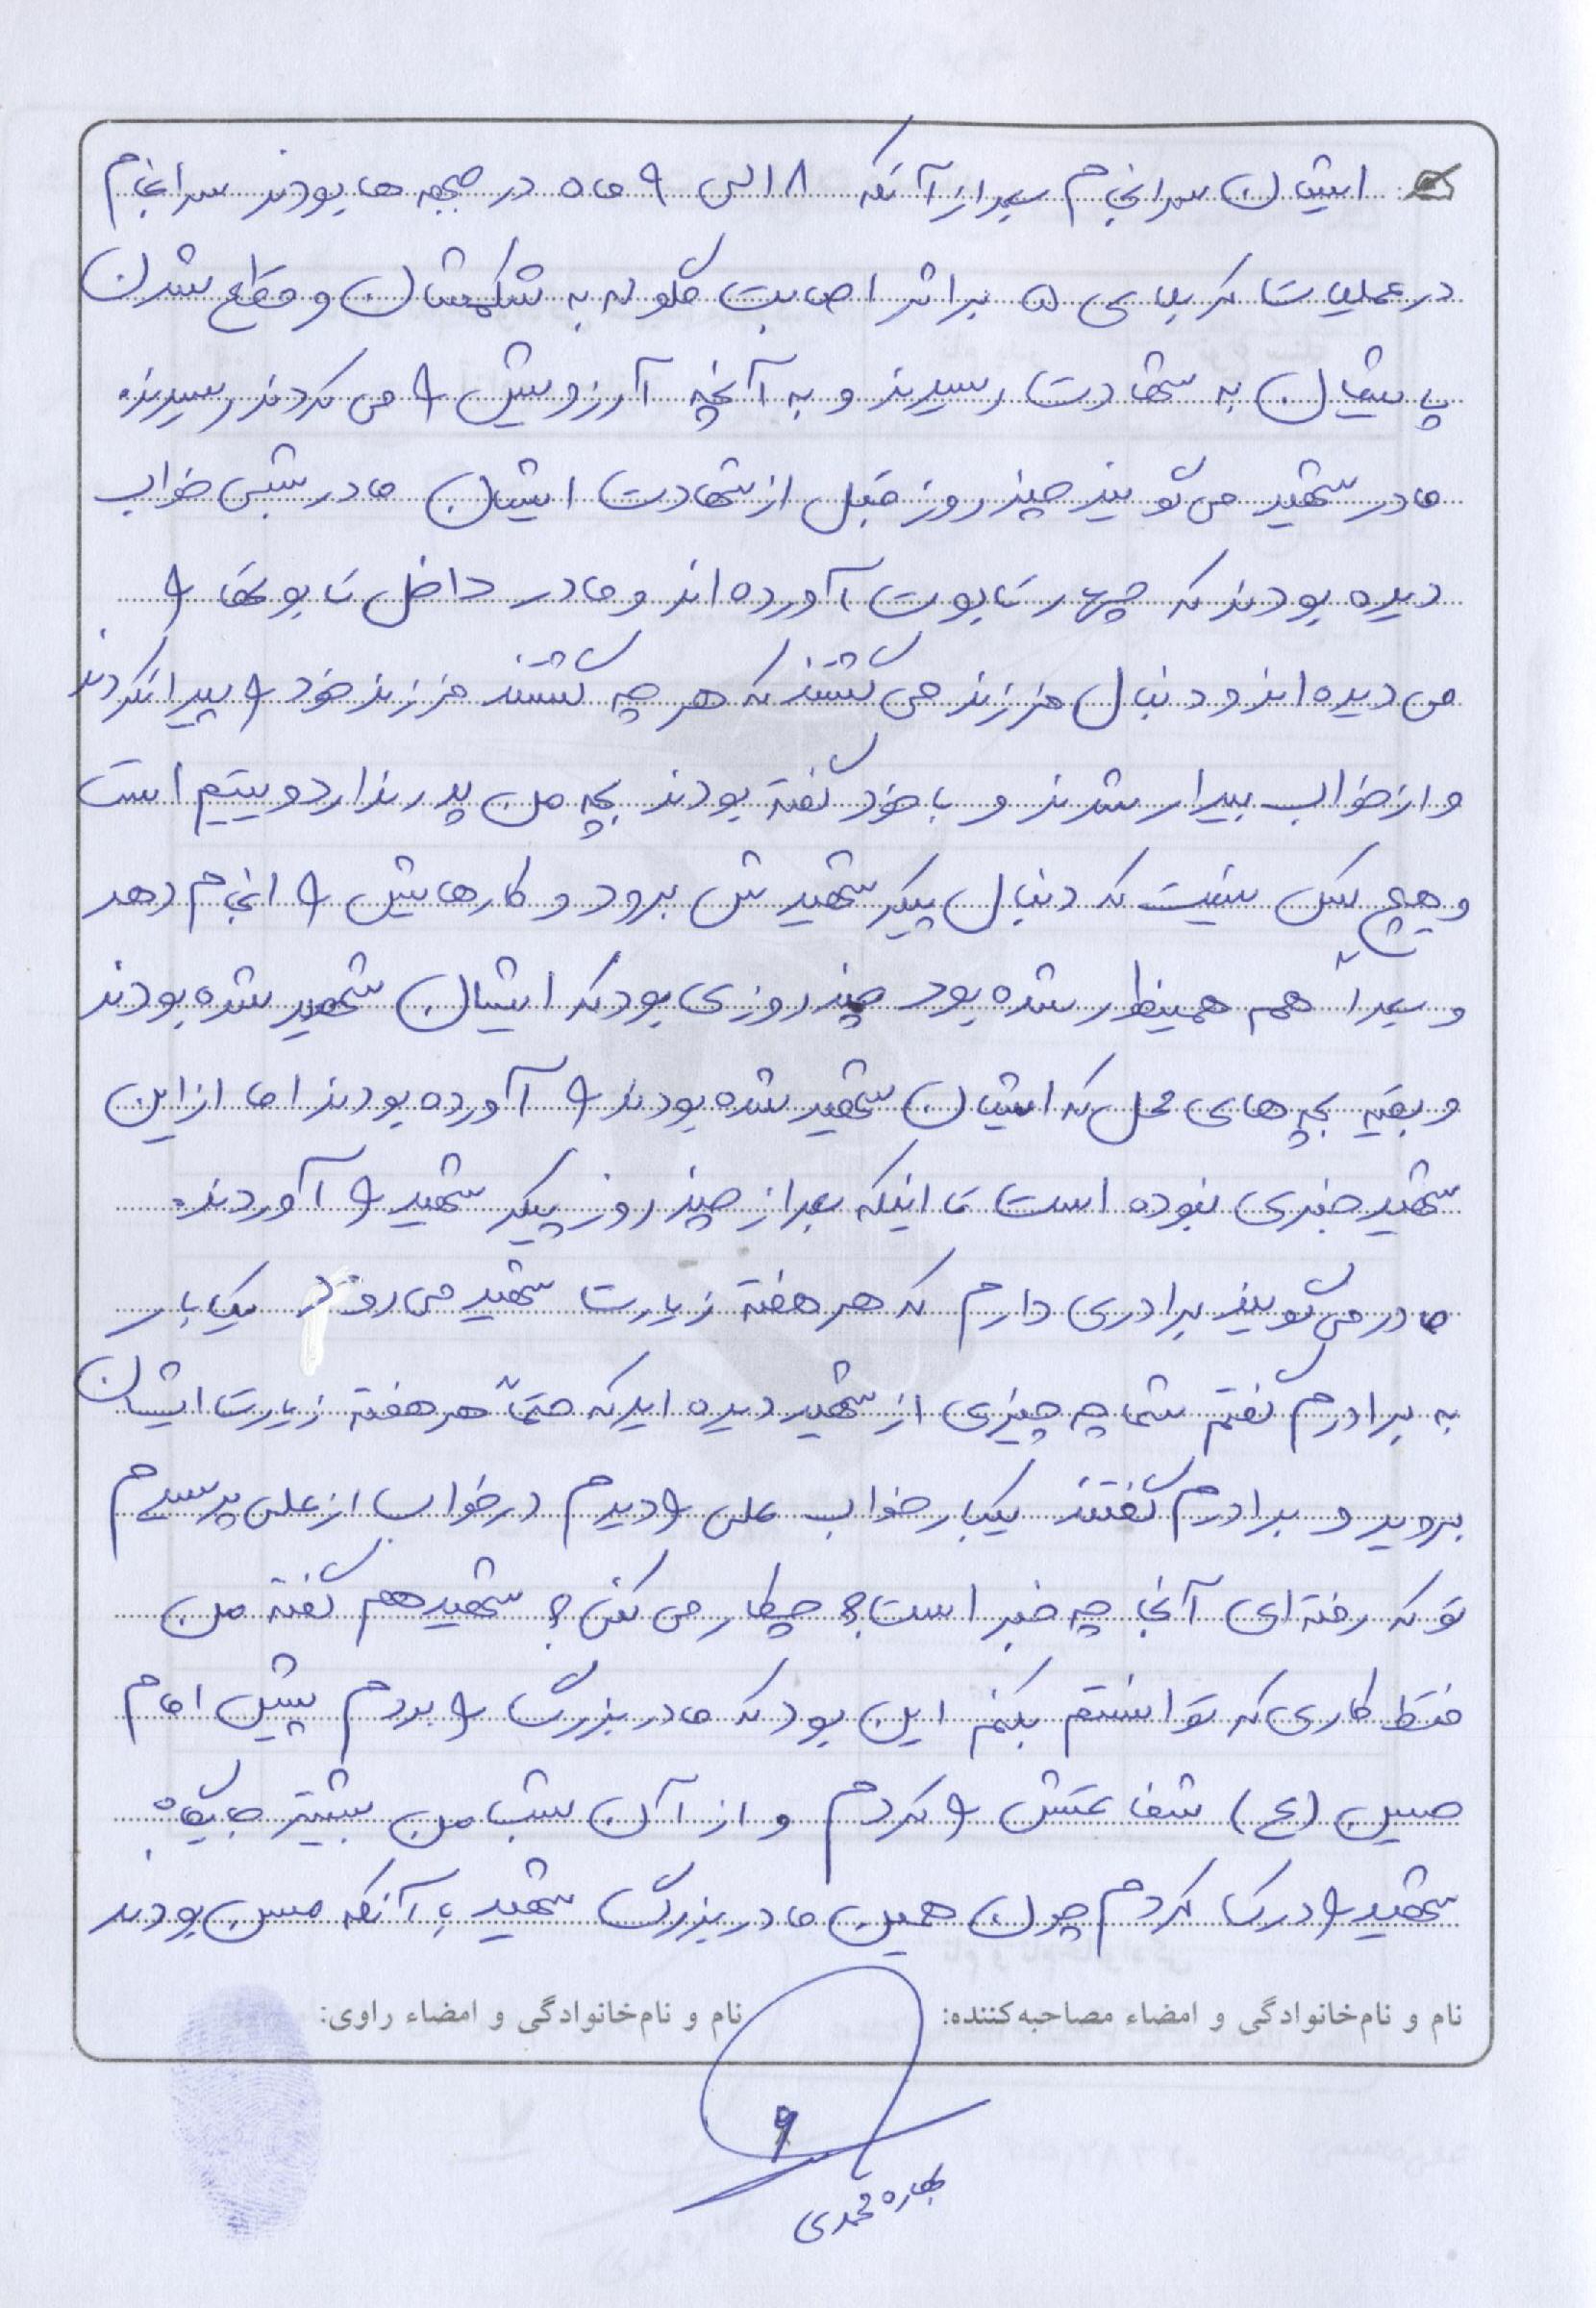 ایشان سرانجام بعد از آنکه ۸ الی ۹ ماه در جبهه ها بودند سرانجام
در عملیات کربلای ۵ بر اثر اصابت گلوله به شکمشان و قطع شدن
پایشان به شهادت رسیدند و به آنچه آرزویش را می کردند رسیدند.
مادر شهید می گویند چند روز قبل از شهادت ایشان مادر شبی خواب
دیده بودند که چهار تابوت آورده اند و مادر داخل تابوتها را
می دیده اند و دنبال فرزند می گشتند که هر چه گشتند فرزند خود را پیدا نکردند
و از خواب بیدار شدند و با خود گفته بودند بچه من پدر ندارد و یتیم است
و هیچ کس نیست که دنبال پیکر شهیدش برود و کارهایش را انجام دهد
و بعداً هم همینطور شده بود چند روزی بود که ایشان شهید شده بودند
و بقیه بچه های محل که ایشان شهید شده بودند را آورده بودند اما از این
شهید خبری نبوده است تا اینکه بعد از چند روز پیکر شهید را آوردند.
مادر می گویند برادری دارم که هر هفته زیارت شهید می رود یک بار
به برادرم گفتم شما چه چیزی از شهید دیده اید که حتماً هر هفته زیارت ایشان
بروید و برادرم گفتند یکبار خواب علی را دیدم در خواب از علی پرسیدم
تو که رفته ای آنجا چه خبر است؟ چکار می کنی؟ شهید هم گفته من
فقط کاری که توانستم بکنم این بود که مادربزرگ را بردم پیش امام
حسین (ع) شفاعتش را کردم و از آن شب من بیشتر جایگاه
شهید را درک کردم چون همین مادربزرگ شهید با آنکه مسن بودند
نام و نام‌خانوادگی و امضاء مصاحبه‌کننده:
نام و نام‌خانوادگی و امضاء راوی:
۶
بهاره محمدی